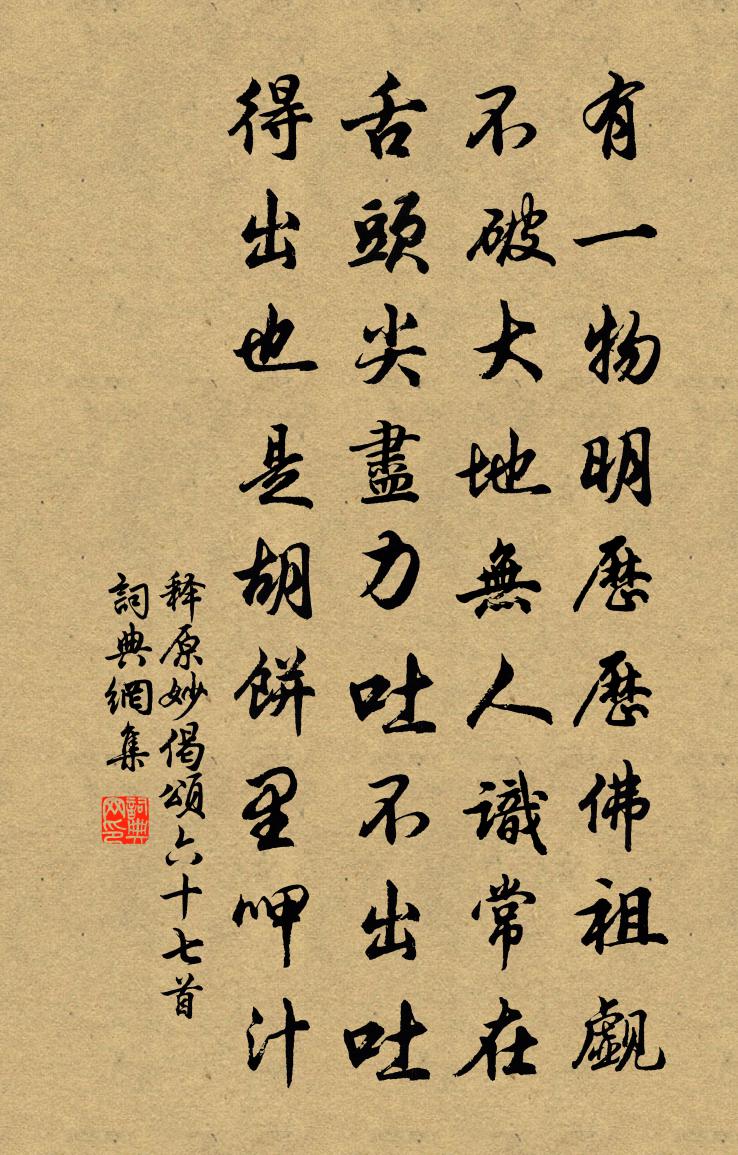 有一物明歷歷佛祖覷
不破大地無人識常在
舌頭尖盡力吐不出吐
得出也是胡餅里呷汁
释原妙偈頌六十七首
詞典網集
詞典网印